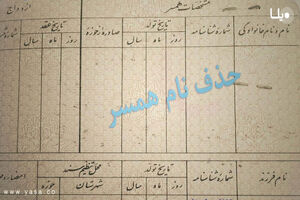 مشخصات همسر
ازدواج
نام و نام خانوادگی
شماره شناسنامه
تاریخ تولد
روز
ماه
سال
صادره از حوزه
تاریخ عقد
روز
ماه
سال
حذف نام همسر
نام فرزند
شماره شناسنامه
تاریخ تولد
روز
ماه
سال
محل تنظیم سند
شهرستان
حوزه
www.yasa.co